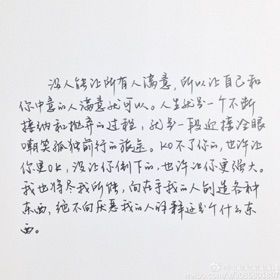 没人能让所有人满意，所以让自己和
你中意的人满意就可以。人生就是一个不断
接纳和抛弃的过程，就是一段迎接冷眼
嘲笑孤独前行的旅途。KO不了你的，也许让
你更OK，没让你倒下的，也许让你更强大。
我也将尽我所能，向在乎我的人创造各种
东西，绝不向厌恶我的人解释这是个什么东
西。